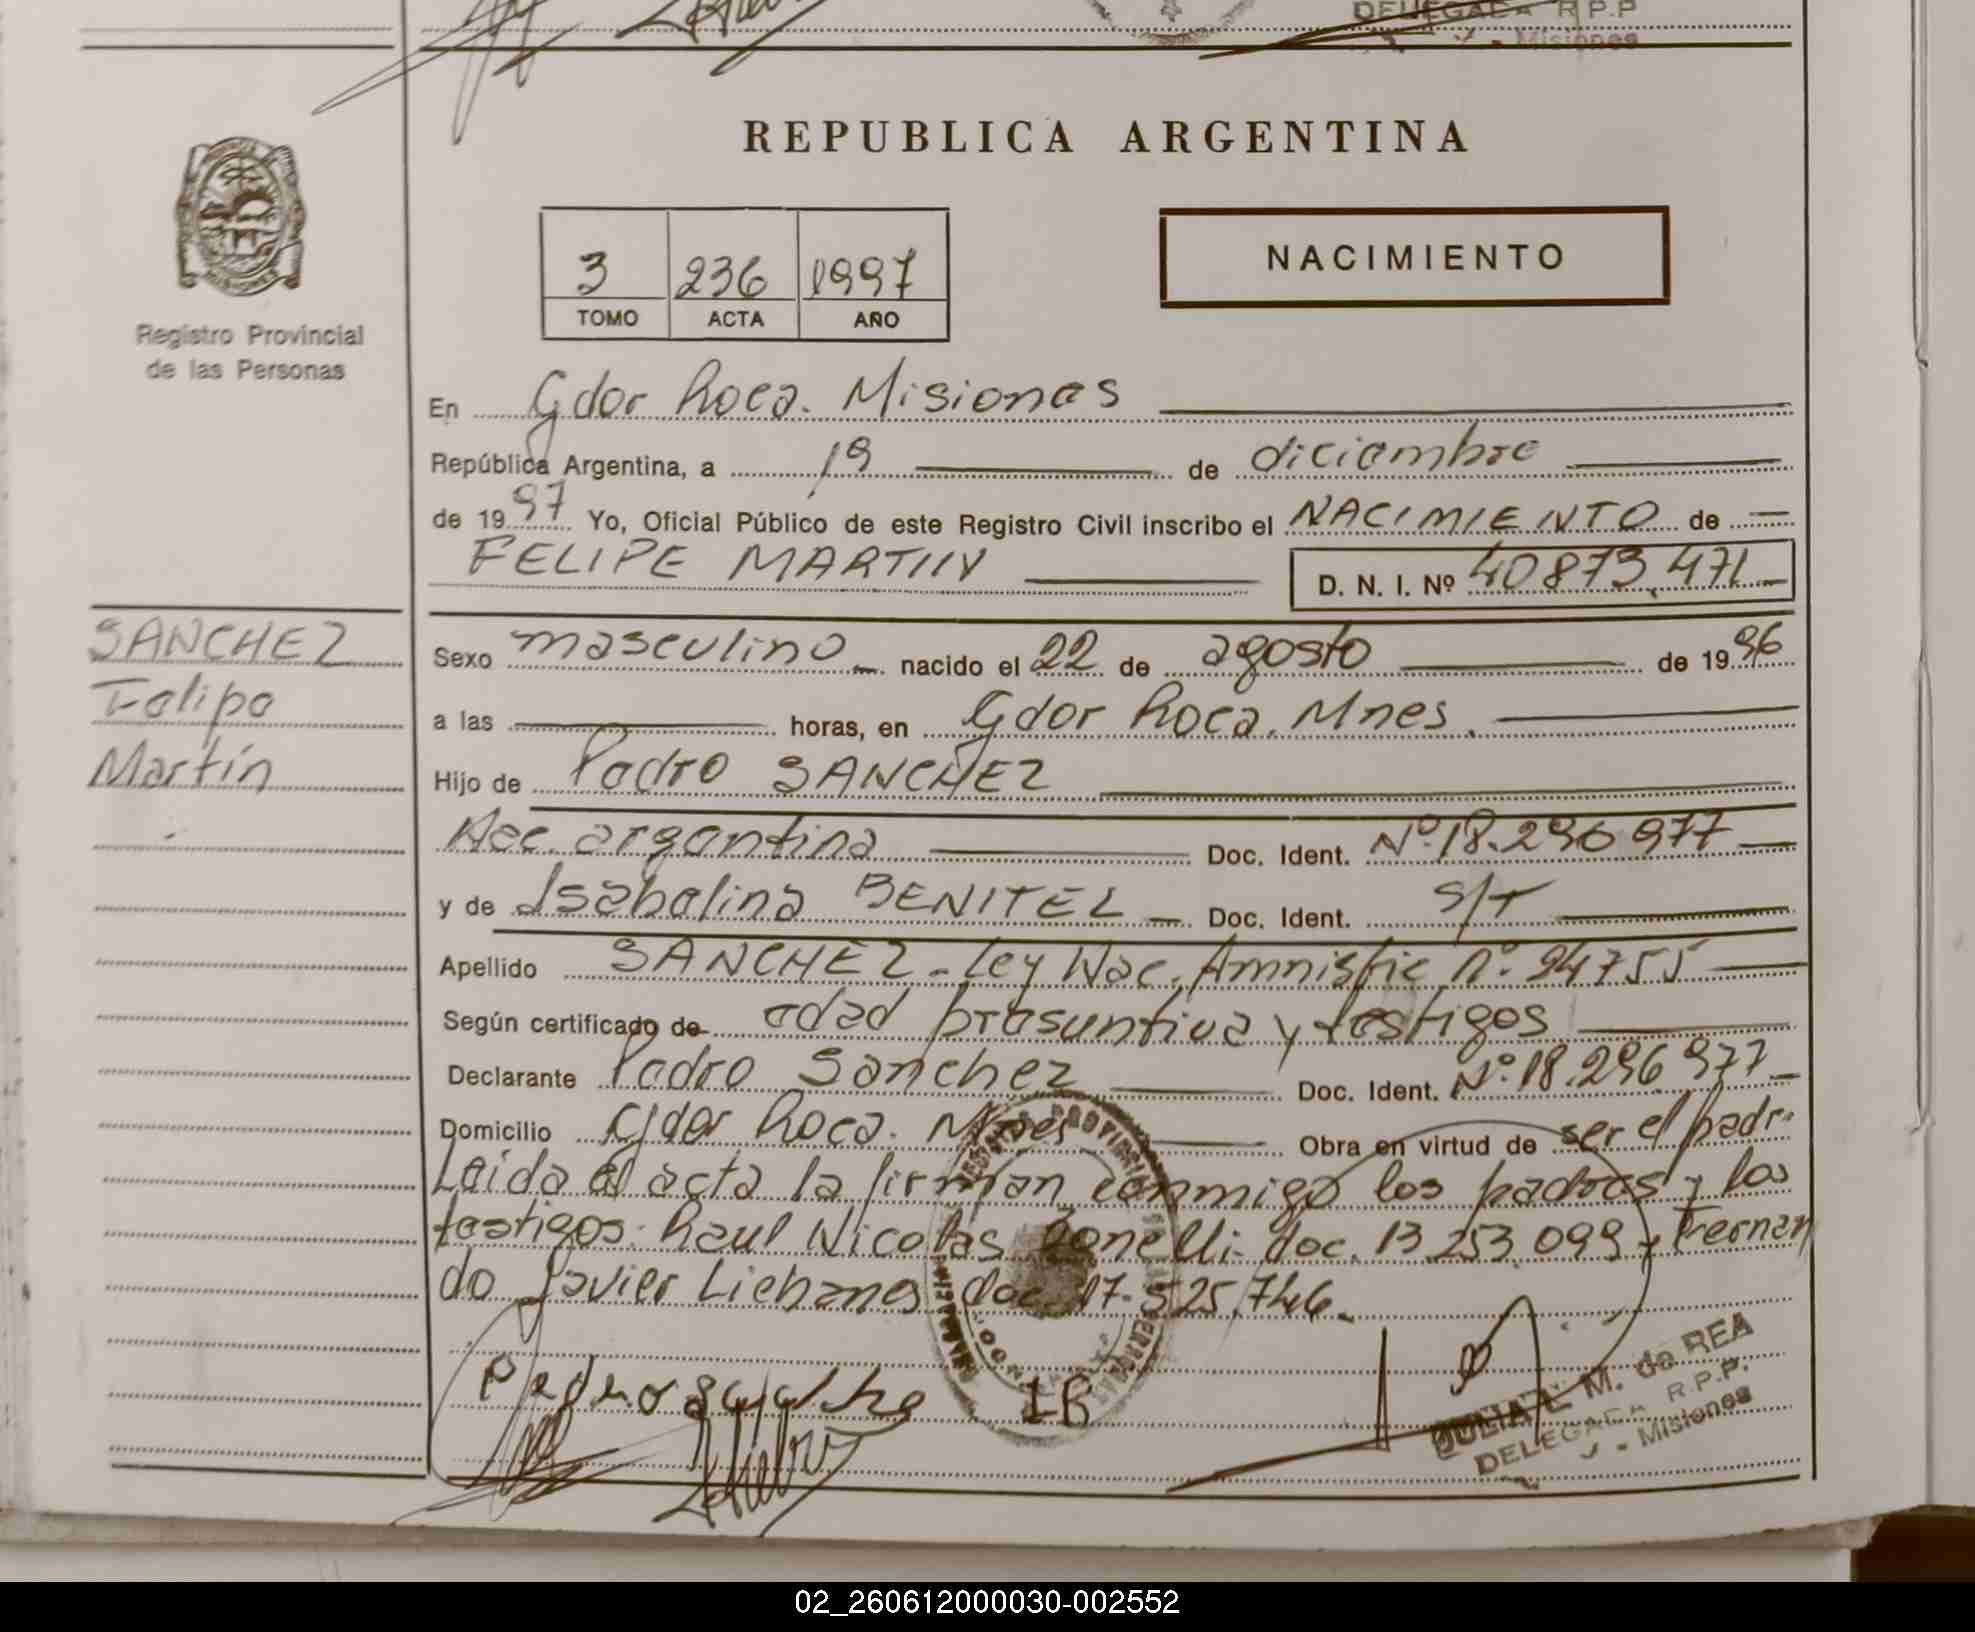 DELEGADA R.P.P
- Misiones
REPUBLICA ARGENTINA
NACIMIENTO
3 236 1997
TOMO ACTA AÑO
Registro Provincial
de las Personas
En Gdor Roca. Misiones
República Argentina, a 19 de diciembre
de 1997 Yo, Oficial Público de este Registro Civil inscribo el NACIMIENTO de
FELIPE MARTIN D. N. I. Nº 40873.471
SANCHEZ
Felipe
Martín
Sexo masculino nacido el 22 de agosto de 1996
a las horas, en Gdor Roca. Mnes.
Hijo de Pedro SANCHEZ
Nac. argentina Doc. Ident. Nº 18.296 977
y de Isabelina BENITEZ Doc. Ident. S/T
Apellido SANCHEZ - Ley Nac. Amnistie nº 24755
Según certificado de edad presuntiva y testigos
Declarante Pedro Sanchez Doc. Ident. Nº 18.296 977
Domicilio Gdor Roca. Mnes Obra en virtud de ser el padre
Leida el acta la firman conmigo los padres y los
testigos: Raul Nicolas Zonelli - doc. 13 253 099 y Fernan
do Javier Liebana doc. 17.525.746.
Pedro sanche
IB
JULIA L. M. de REA
DELEGADA R.P.P.
- Misiones
02_260612000030-002552